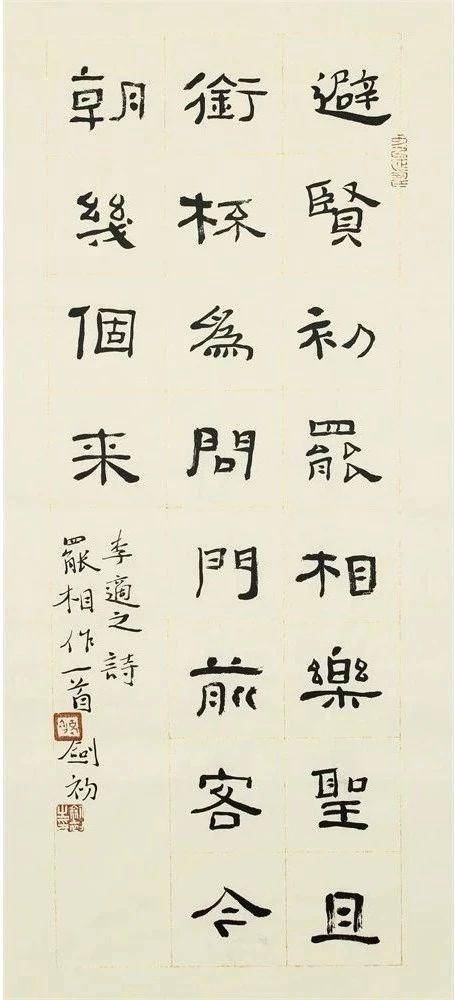 避賢初罷相樂聖且
銜杯為問門前客今
朝幾個来
李適之詩
罷相作一首 劍初